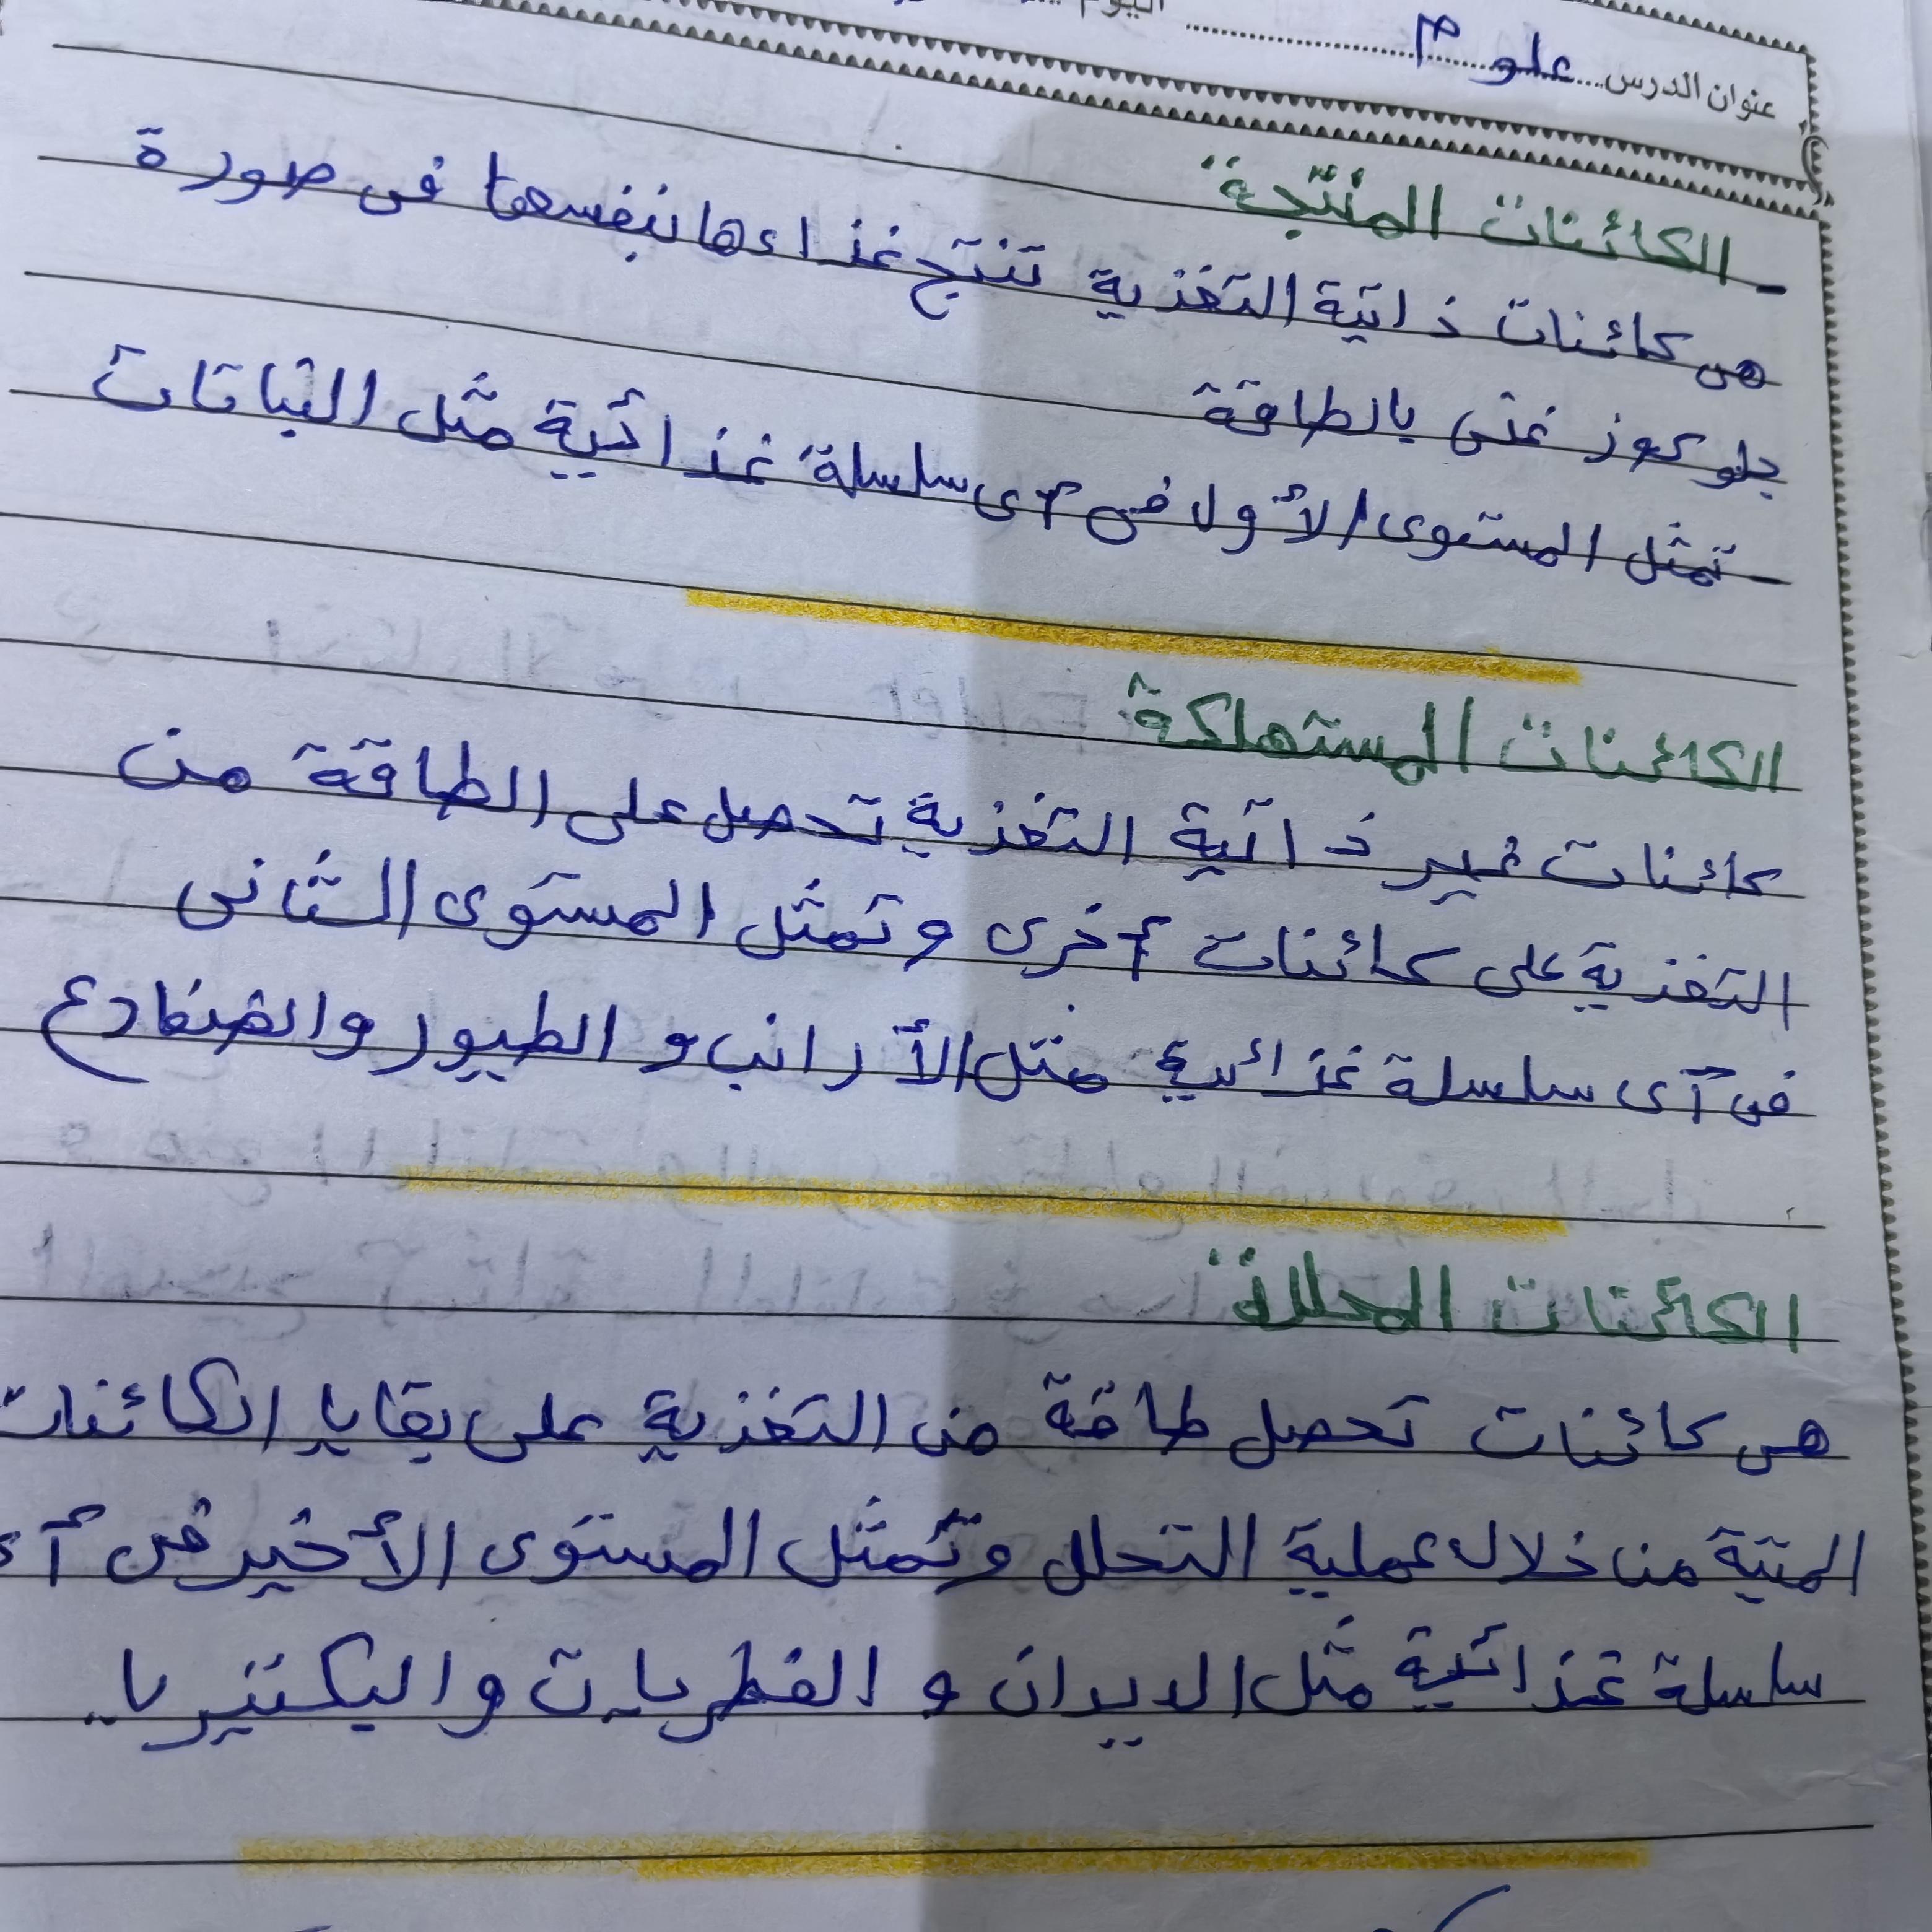 اليوم
عنوان الدرس علوم
- الكائنات المنتجة
هى كائنات ذاتية التغذية تنتج غذاءها بنفسها فى صورة
جلوكوز غنى بالطاقة
- تمثل المستوى الأول فى أى سلسلة غذائية مثل النباتات
الكائنات المستهلكة
كائنات غير ذاتية التغذية تحصل على الطاقة من
التغذية على كائنات أخرى وتمثل المستوى الثانى
فى أى سلسلة غذائية مثل الأرانب و الطيور والضفادع
الكائنات المحللة
هى كائنات تحصل طاقة من التغذية على بقايا الكائنات
الميتة من خلال عملية التحلل وتمثل المستوى الأخير فى أى
سلسلة غذائية مثل الديدان و الفطريات والبكتيريا